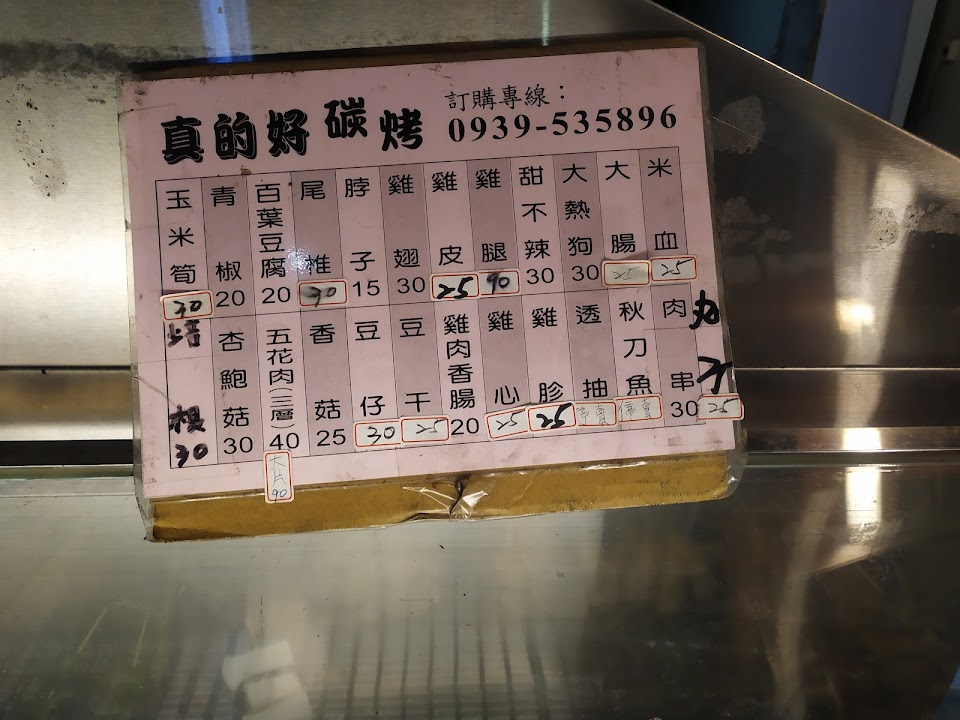 真的好碳烤
訂購專線：
0939-535896
米血 25
大腸 25
大熱狗 30
甜不辣 30
雞腿 90
雞皮 25
雞翅 30
脖子 15
尾椎 30
百葉豆腐 20
青椒 20
玉米筍 30
肉丸 25
肉串 30
秋刀魚
透抽
雞胗 25
雞心 25
雞肉香腸 20
豆干 25
豆仔 30
香菇 25
五花肉(三層) 40
90
杏鮑菇 30
培根 30